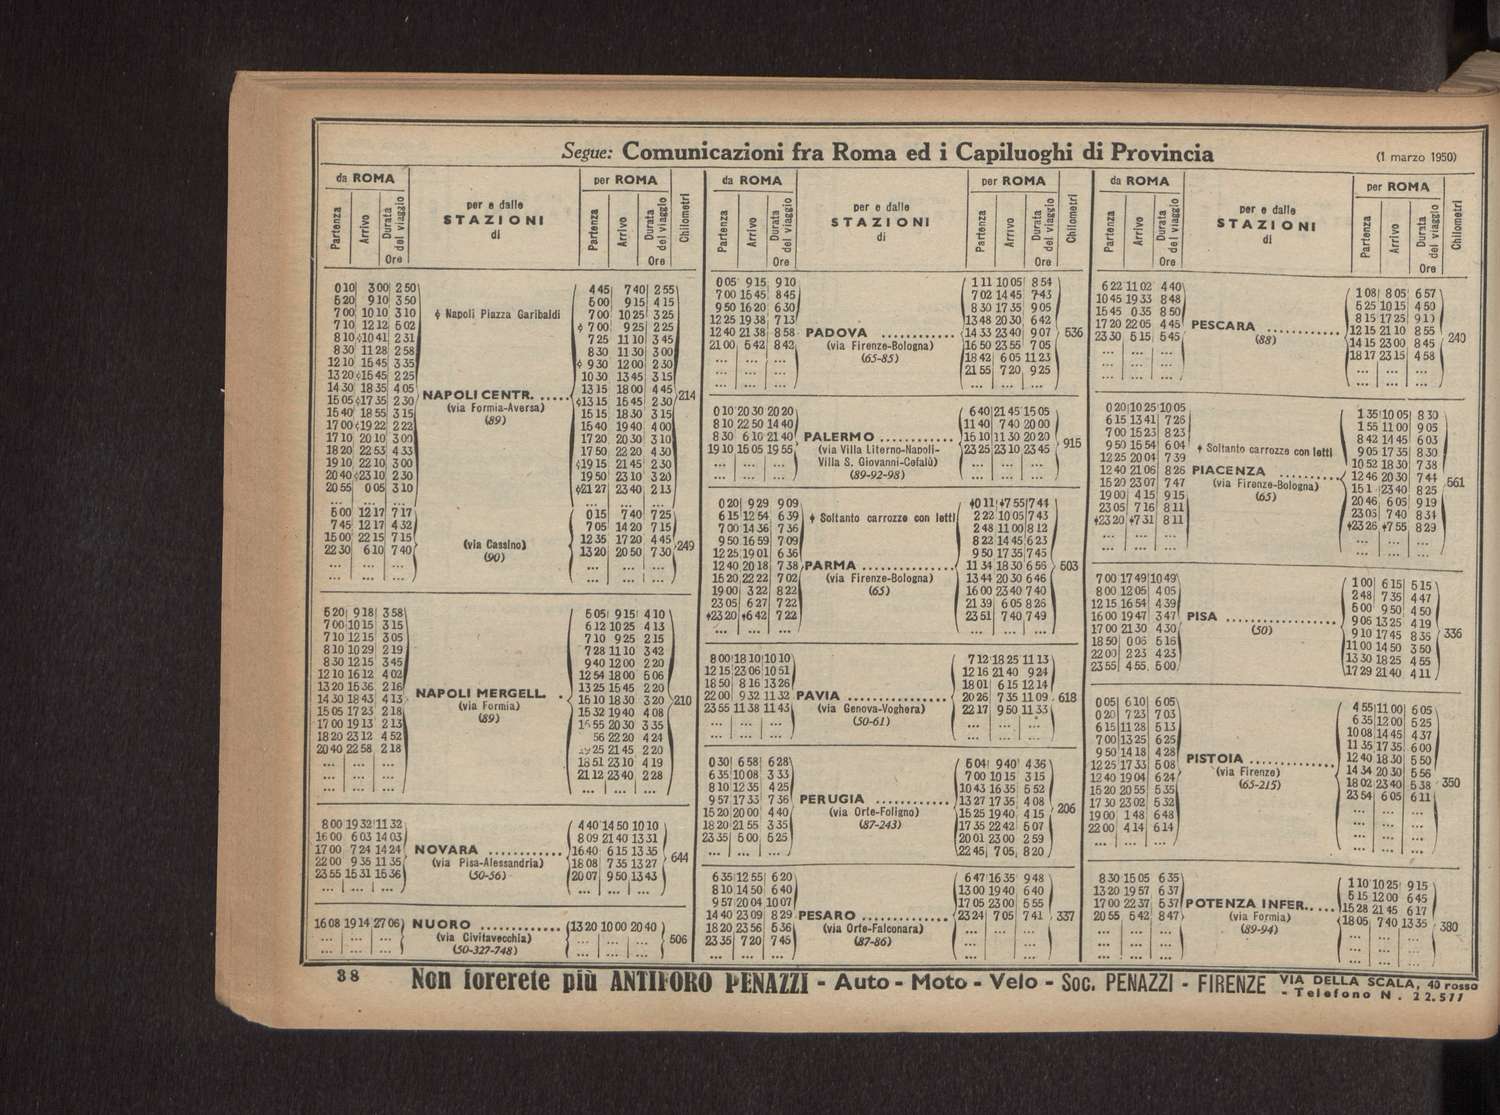 Segue: Comunicazioni fra Roma ed i Capiluoghi di Provincia
(1 marzo 1950)
da ROMA
per e dalle
STAZIONI
di
per ROMA
Partenza
Arrivo
Durata del viaggio
Ore
Partenza
Arrivo
Durata del viaggio
Ore
Chilometri
0 10 3 00 2 50
5 20 9 10 3 50
7 00 10 10 3 10
7 10 12 12 5 02
8 10 ϕ10 41 2 31
8 30 11 28 2 58
12 10 15 45 3 35
13 20 ϕ15 45 2 25
14 30 18 35 4 05
15 05 ϕ17 35 2 30
15 40 18 55 3 15
17 00 ϕ19 22 2 22
17 10 20 10 3 00
18 20 22 53 4 33
19 10 22 10 3 00
20 40 ϕ23 10 2 30
20 55 0 05 3 10
... ... ...
ϕ Napoli Piazza Garibaldi
NAPOLI CENTR. .....
(via Formia-Aversa)
(89)
4 45 7 40 2 55
5 00 9 15 4 15
7 00 10 25 3 25
ϕ 7 00 9 25 2 25
7 25 11 10 3 45
8 30 11 30 3 00
ϕ 9 30 12 00 2 30
10 30 13 45 3 15
13 15 18 00 4 45
ϕ13 15 15 45 2 30
15 15 18 30 3 15
15 40 19 40 4 00
17 20 20 30 3 10
17 50 22 20 4 30
ϕ19 15 21 45 2 30
19 50 23 10 3 20
ϕ21 27 23 40 2 13
214
5 00 12 17 7 17
7 45 12 17 4 32
15 00 22 15 7 15
22 30 6 10 7 40
... ... ...
... ... ...
(via Cassino)
(90)
0 15 7 40 7 25
7 05 14 20 7 15
12 35 17 20 4 45
13 20 20 50 7 30
... ... ...
... ... ...
249
5 20 9 18 3 58
7 00 10 15 3 15
7 10 12 15 5 05
8 10 10 29 2 19
8 30 12 15 3 45
12 10 16 12 4 02
13 20 15 36 2 16
14 30 18 43 4 13
15 05 17 23 2 18
17 00 19 13 2 13
18 20 23 12 4 52
20 40 22 58 2 18
... ... ...
... ... ...
... ... ...
NAPOLI MERGELL. .
(via Formia)
(89)
5 05 9 15 4 10
6 12 10 25 4 13
7 10 9 25 2 15
7 28 11 10 3 42
9 40 12 00 2 20
12 54 18 00 5 06
13 25 15 45 2 20
15 10 18 30 3 20
15 32 19 40 4 08
55 20 30 3 35
56 22 20 4 24
25 21 45 2 20
18 51 23 10 4 19
21 12 23 40 2 28
... ... ...
210
8 00 19 32 11 32
16 00 6 03 14 03
17 00 7 24 14 24
22 00 9 35 11 35
23 55 15 31 15 36
... ... ...
NOVARA ............
(via Pisa-Alessandria)
(50-56)
4 40 14 50 10 10
8 09 21 40 13 31
16 40 6 15 13 35
18 08 7 35 13 27
20 07 9 50 13 43
... ... ...
644
16 08 19 14 27 06
... ... ...
... ... ...
NUORO .............
(via Civitavecchia)
(50-327-748)
13 20 10 00 20 40
... ... ...
... ... ...
506
da ROMA
per e dalle
STAZIONI
di
per ROMA
Partenza
Arrivo
Durata del viaggio
Ore
Partenza
Arrivo
Durata del viaggio
Ore
Chilometri
0 05 9 15 9 10
7 00 15 45 8 45
9 50 16 20 6 30
12 25 19 38 7 13
12 40 21 38 8 58
21 00 5 42 8 42
... ... ...
... ... ...
... ... ...
PADOVA ...........
(via Firenze-Bologna)
(65-85)
1 11 10 05 8 54
7 02 14 45 7 43
8 30 17 35 9 05
13 48 20 30 6 42
14 33 23 40 9 07
16 50 23 55 7 05
18 42 6 05 11 23
21 55 7 20 9 25
... ... ...
536
0 10 20 30 20 20
8 10 22 50 14 40
8 30 6 10 21 40
19 10 15 05 19 55
... ... ...
... ... ...
PALERMO ...........
(via Villa Literno-Napoli-
Villa S. Giovanni-Cefalù)
(89-92-98)
6 40 21 45 15 05
11 40 7 40 20 00
15 10 11 30 20 20
23 25 23 10 23 45
... ... ...
... ... ...
915
0 20 9 29 9 09
6 15 12 54 6 39
7 00 14 36 7 36
9 50 16 59 7 09
12 25 19 01 6 36
12 40 20 18 7 38
15 20 22 22 7 02
19 00 3 22 8 22
23 05 6 27 7 22
ϕ23 20 ϕ6 42 7 22
... ... ...
ϕ Soltanto carrozze con letti
PARMA ..............
(via Firenze-Bologna)
(65)
ϕ0 11 ϕ7 55 7 44
2 22 10 05 7 43
2 48 11 00 8 12
8 22 14 45 6 23
9 50 17 35 7 45
11 34 18 30 6 56
13 44 20 30 6 46
16 00 23 40 7 40
21 39 6 05 8 26
23 51 7 40 7 49
... ... ...
503
8 00 18 10 10 10
12 15 23 06 10 51
18 50 8 16 13 26
22 00 9 32 11 32
23 55 11 38 11 43
... ... ...
... ... ...
PAVIA ..............
(via Genova-Voghera)
(50-61)
7 12 18 25 11 13
12 16 21 40 9 24
18 01 6 15 12 14
20 26 7 35 11 09
22 17 9 50 11 33
... ... ...
... ... ...
618
0 30 6 58 6 28
6 35 10 08 3 33
8 10 12 35 4 25
9 57 17 33 7 36
15 20 20 00 4 40
18 20 21 55 3 35
23 35 5 00 5 25
... ... ...
PERUGIA ............
(via Orte-Foligno)
(87-243)
5 04 9 40 4 36
7 00 10 15 3 15
10 43 16 35 5 52
13 27 17 35 4 08
15 25 19 40 4 15
17 35 22 42 5 07
20 01 23 00 2 59
22 45 7 05 8 20
206
6 35 12 55 6 20
8 10 14 50 6 40
9 57 20 04 10 07
14 40 23 09 8 29
18 20 23 56 5 36
23 35 7 20 7 45
... ... ...
PESARO .............
(via Orte-Falconara)
(87-86)
6 47 16 35 9 48
13 00 19 40 6 40
17 05 23 00 5 55
23 24 7 05 7 41
... ... ...
... ... ...
... ... ...
337
da ROMA
per e dalle
STAZIONI
di
per ROMA
Partenza
Arrivo
Durata del viaggio
Ore
Partenza
Arrivo
Durata del viaggio
Ore
Chilometri
6 22 11 02 4 40
10 45 19 33 8 48
15 45 0 35 8 50
17 20 22 05 4 45
23 30 5 15 5 45
... ... ...
... ... ...
... ... ...
PESCARA ............
(88)
1 08 8 05 6 57
5 25 10 15 4 50
8 15 17 25 9 10
12 15 21 10 8 55
14 15 23 00 8 45
18 17 23 15 4 58
... ... ...
... ... ...
240
0 20 10 25 10 05
6 15 13 41 7 26
7 00 15 23 8 23
9 50 15 54 6 04
12 25 20 04 7 39
12 40 21 06 8 26
15 20 23 07 7 47
19 00 4 15 9 15
23 05 7 16 8 11
ϕ23 20 ϕ7 31 8 11
... ... ...
... ... ...
ϕ Soltanto carrozze con letti
PIACENZA ..........
(via Firenze-Bologna)
(65)
1 35 10 05 8 30
1 55 11 00 9 05
8 42 14 45 6 03
9 05 17 35 8 30
10 52 18 30 7 38
12 46 20 30 7 44
15 1 23 40 8 25
20 46 6 05 9 19
23 05 7 40 8 34
ϕ23 26 ϕ7 55 8 29
... ... ...
... ... ...
561
7 00 17 49 10 49
8 00 12 05 4 05
12 15 16 54 4 39
16 00 19 47 3 47
17 00 21 30 4 30
18 50 0 06 5 16
22 00 2 23 4 23
23 55 4 55 5 00
PISA .................
(50)
1 00 6 15 5 15
2 48 7 35 4 47
5 00 9 50 4 50
9 06 13 25 4 19
9 10 17 45 8 35
11 00 14 50 3 50
13 30 18 25 4 55
17 29 21 40 4 11
336
0 05 6 10 6 05
0 20 7 23 7 03
6 15 11 28 5 13
7 00 13 25 6 25
9 50 14 18 4 28
12 25 17 33 5 08
12 40 19 04 6 24
15 20 20 55 5 35
17 30 23 02 5 32
19 00 1 48 6 48
22 00 4 14 6 14
... ... ...
PISTOIA .............
(via Firenze)
(65-215)
4 55 11 00 6 05
6 35 12 00 5 25
10 08 14 45 4 37
11 35 17 35 6 00
12 40 18 30 5 50
14 34 20 30 5 56
18 02 23 40 5 38
23 54 6 05 6 11
... ... ...
... ... ...
... ... ...
... ... ...
350
8 30 15 05 6 35
13 20 19 57 6 37
17 00 22 37 5 37
20 55 5 42 8 47
... ... ...
... ... ...
... ... ...
POTENZA INFER. ....
(via Formia)
(89-94)
1 10 10 25 9 15
5 15 12 00 6 45
15 28 21 45 6 17
18 05 7 40 13 35
... ... ...
... ... ...
... ... ...
380
38
Non forerete più ANTIFORO PENAZZI - Auto - Moto - Velo - Soc. PENAZZI - FIRENZE VIA DELLA SCALA, 40 rosso
- Telefono N. 22.577